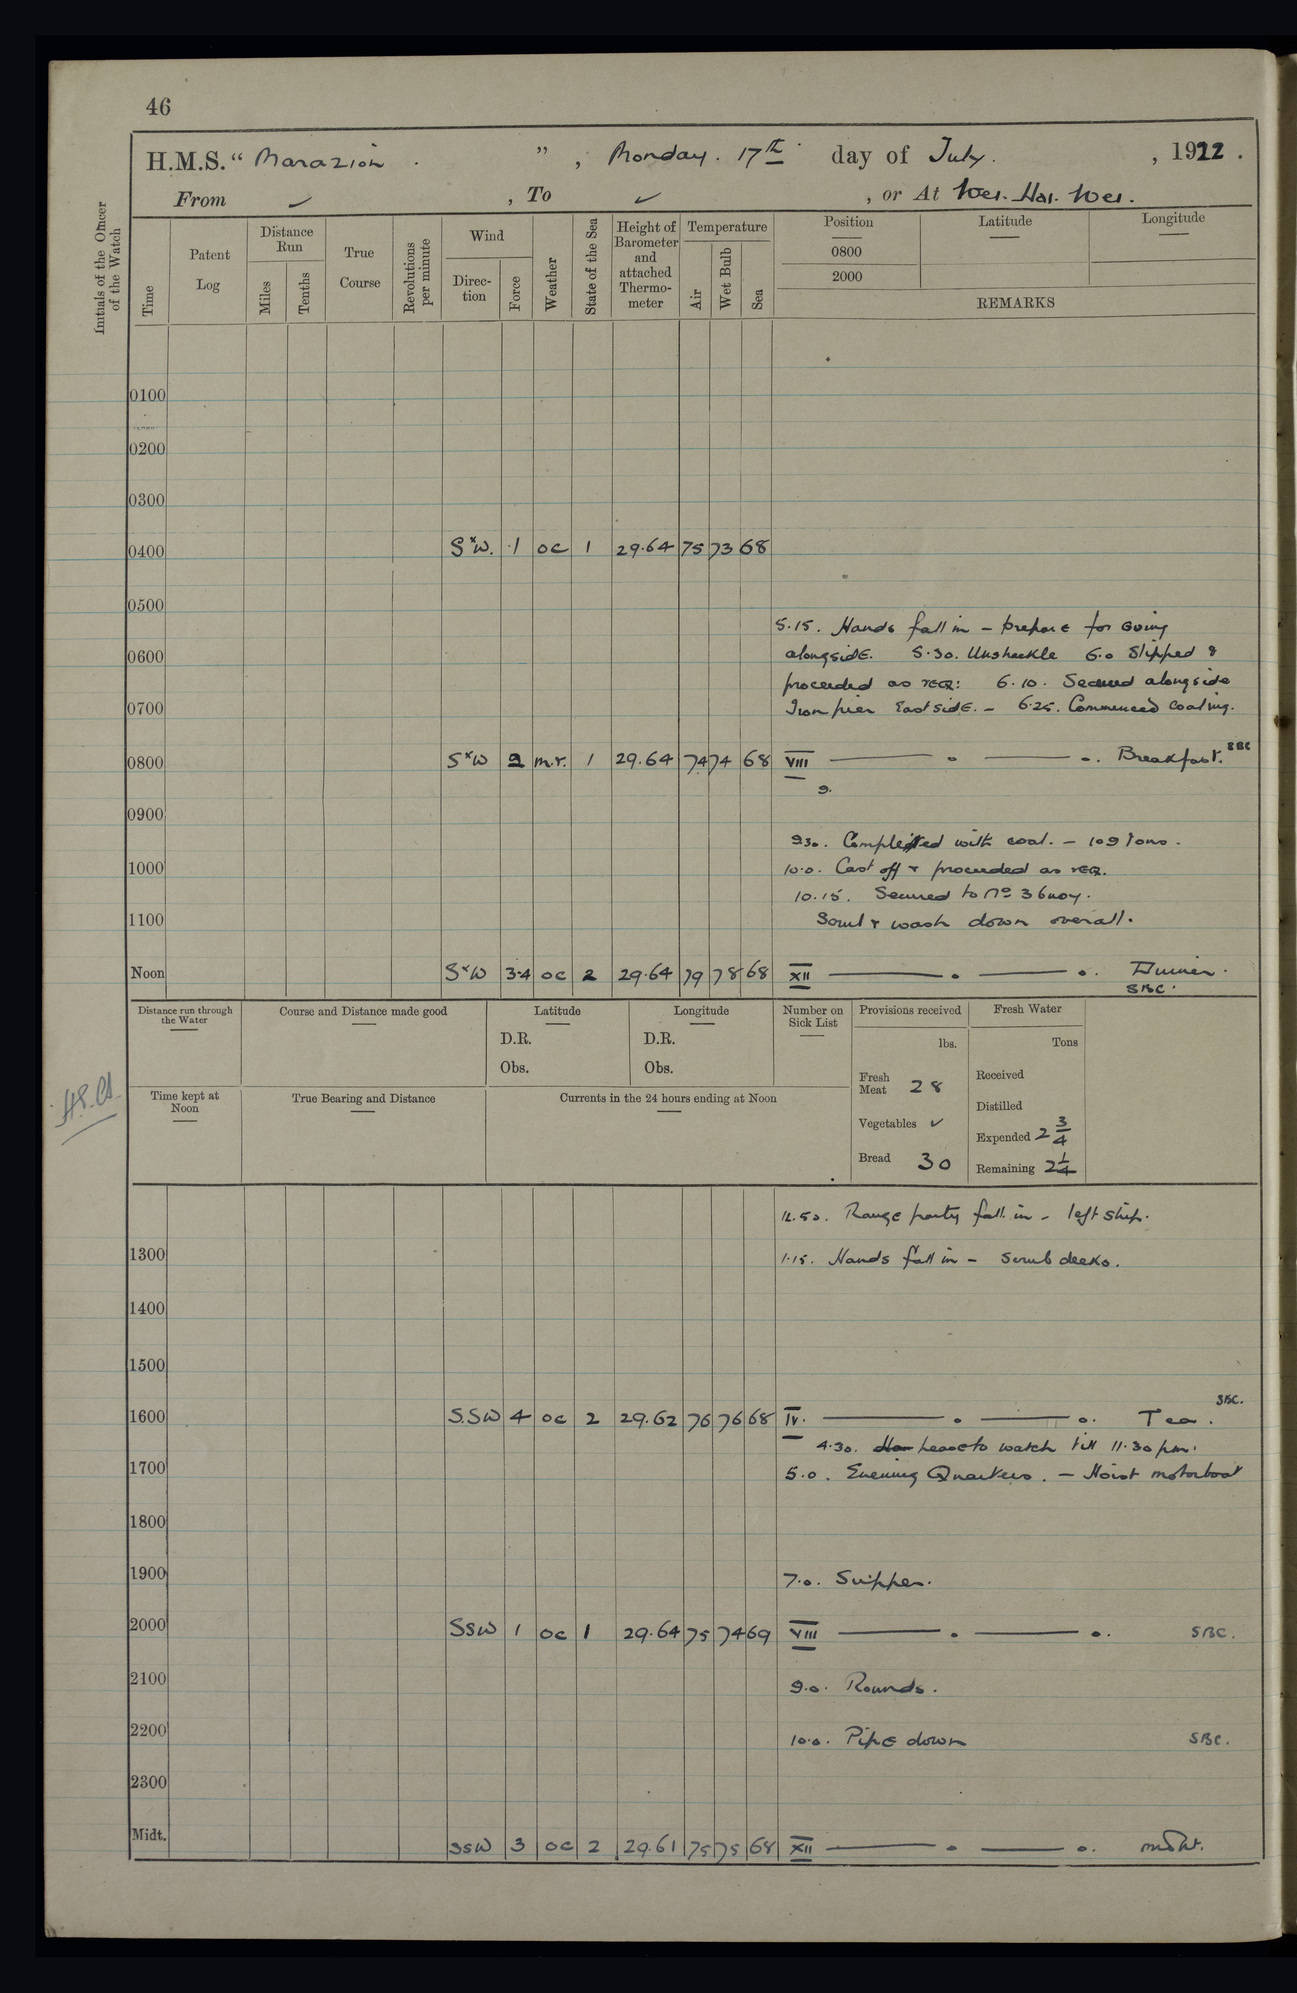 46
H.M.S. " Marazion ", Monday. 17th. day of July. , 1922.
From ✓ , To ✓ , or At Wei. Hai. Wei.
Initials of the Officer of the Watch
Time
Patent Log
Distance Run
Miles
Tenths
True Course
Revolutions per minute
Wind
Direction
Force
Weather
State of the Sea
Height of Barometer and attached Thermometer
Temperature
Air
Wet Bulb
Sea
Position
0800
2000
Latitude
Longitude
REMARKS
0100
0200
0300
0400 SxW. 1 oc 1 29.64 75 73 68
0500
5.15. Hands fall in - prepare for Going
0600 alongside. 5.30. Unshackle 6.0 Slipped &
proceeded as req: 6.10. Secured alongside
0700 Iron pier East side. - 6.25. Commenced coaling.
0800 SxW 2 m.r. 1 29.64 74 74 68 VIII o o. Breakfast. SBC
9.
0900
9.30. Completed with coal. - 109 Tons.
1000 10.0. Cast off & proceeded as req.
10.15. Secured to No 3 buoy.
1100 Scrub & wash down overall.
Noon SxW 3-4 oc 2 29.64 79 78 68 XII o o. Dinner.
SBC.
Distance run through the Water
Course and Distance made good
Latitude
D.R.
Obs.
Longitude
D.R.
Obs.
Number on Sick List
Provisions received
lbs.
Fresh Meat 28
Vegetables ✓
Bread 30
Fresh Water
Tons
Received
Distilled
Expended 2 3/4
Remaining 21/4
Time kept at Noon
True Bearing and Distance
Currents in the 24 hours ending at Noon
12.50. Range party fall in - left ship.
1300 1.15. Hands fall in - scrub decks.
1400
1500
SBC.
1600 S.SW 4 oc 2 29.62 76 76 68 IV. o o. Tea.
4.30. Leave to watch till 11.30 p.m.
1700 5.0. Evening Quarters. - Hoist motorboat
1800
1900 7.0. Supper.
2000 SSW 1 oc 1 29.64 75 74 69 VIII o o. SBC.
2100 9.0. Rounds.
2200 10.0. Pipe down SBC.
2300
Midt. SSW 3 oc 2 29.61 75 75 68 XII o o.